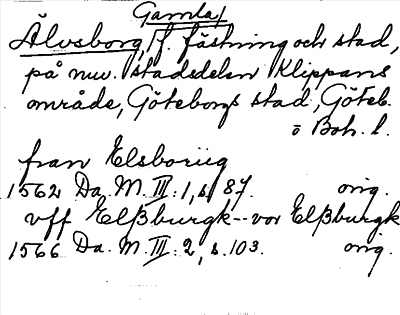 Gamla/
Älvsborg, f. fästning och stad,
på nuv. stadsdelen Klippans
område, Göteborgs stad, Göteb.
o Boh. l.
fran Elsboriig
1562 Da. M. III: 1, s. 87. orig.
vff Elßburgk -- vor Elßburgk
1566 Da. M. III: 2, s. 103. orig.